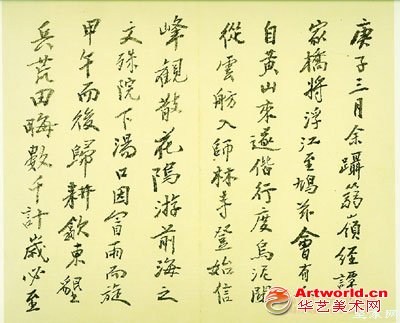 庚子三月余躡箬嶺經譚
家橋將浮江至鳩茲會有
自黃山來遂偕行度烏泥關
從雲舫入師林寺登始信
峰觀散花隖游前海之
文殊院下湯口因雨而旋
甲午而後歸耕歙東墾
兵荒田畮數千計歲必至
Artworld.cn
华艺美术网